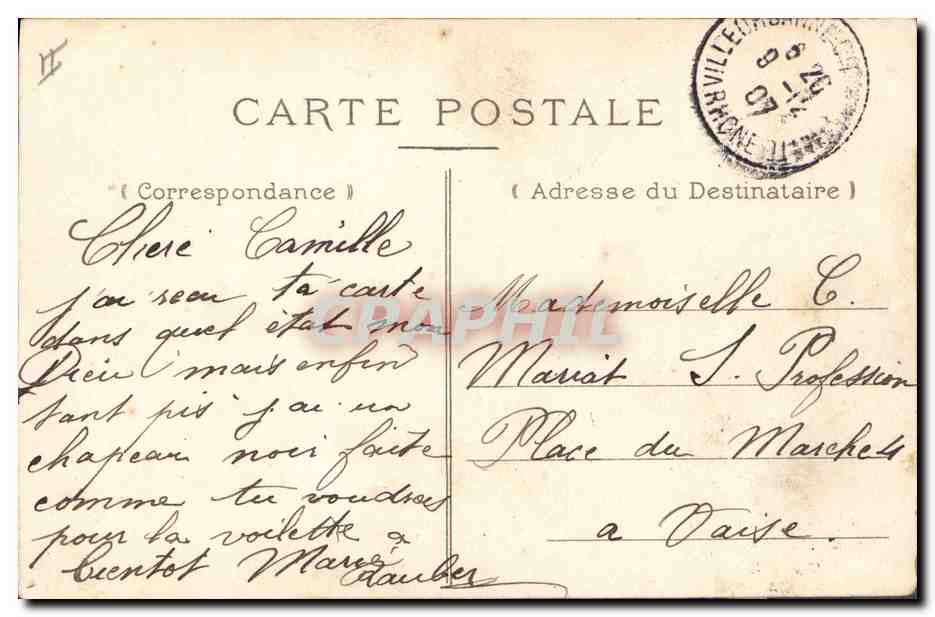 II
CARTE POSTALE
VILLEURBANNE
RHONE
6 20
9 - 12
07
( Correspondance )
( Adresse du Destinataire )
Cheré Camille
j'ai recu ta carte
dans quel état mon
Dieu mais enfin
tant pis j'ai un
chapeau noir faite
comme tu voudras
pour la voilette a
bientot Marie
Mademoiselle C.
Mariat S. Profession
Place du Marche 4
a Vaise.
CPAPHIL